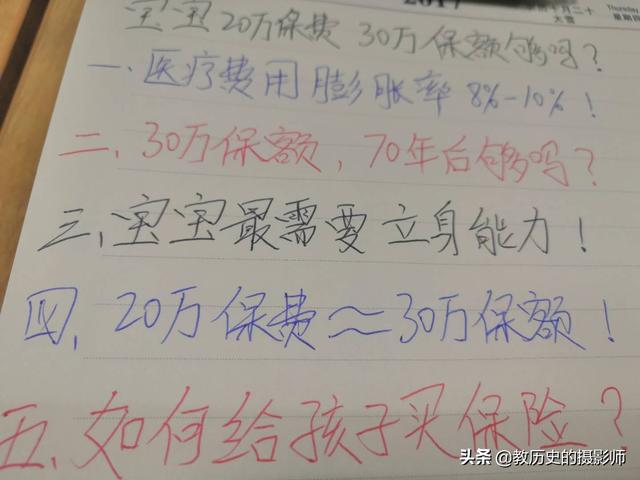 2017
十月二十
大雪
Thursday
星期四
宝宝20万保费 30万保额够吗?
一、医疗费用膨胀率 8%-10%!
二、30万保额,70年后够吗?
三、宝宝最需要立身能力!
四、20万保费≈30万保额!
五、如何给孩子买保险?
头条 @教历史的摄影师